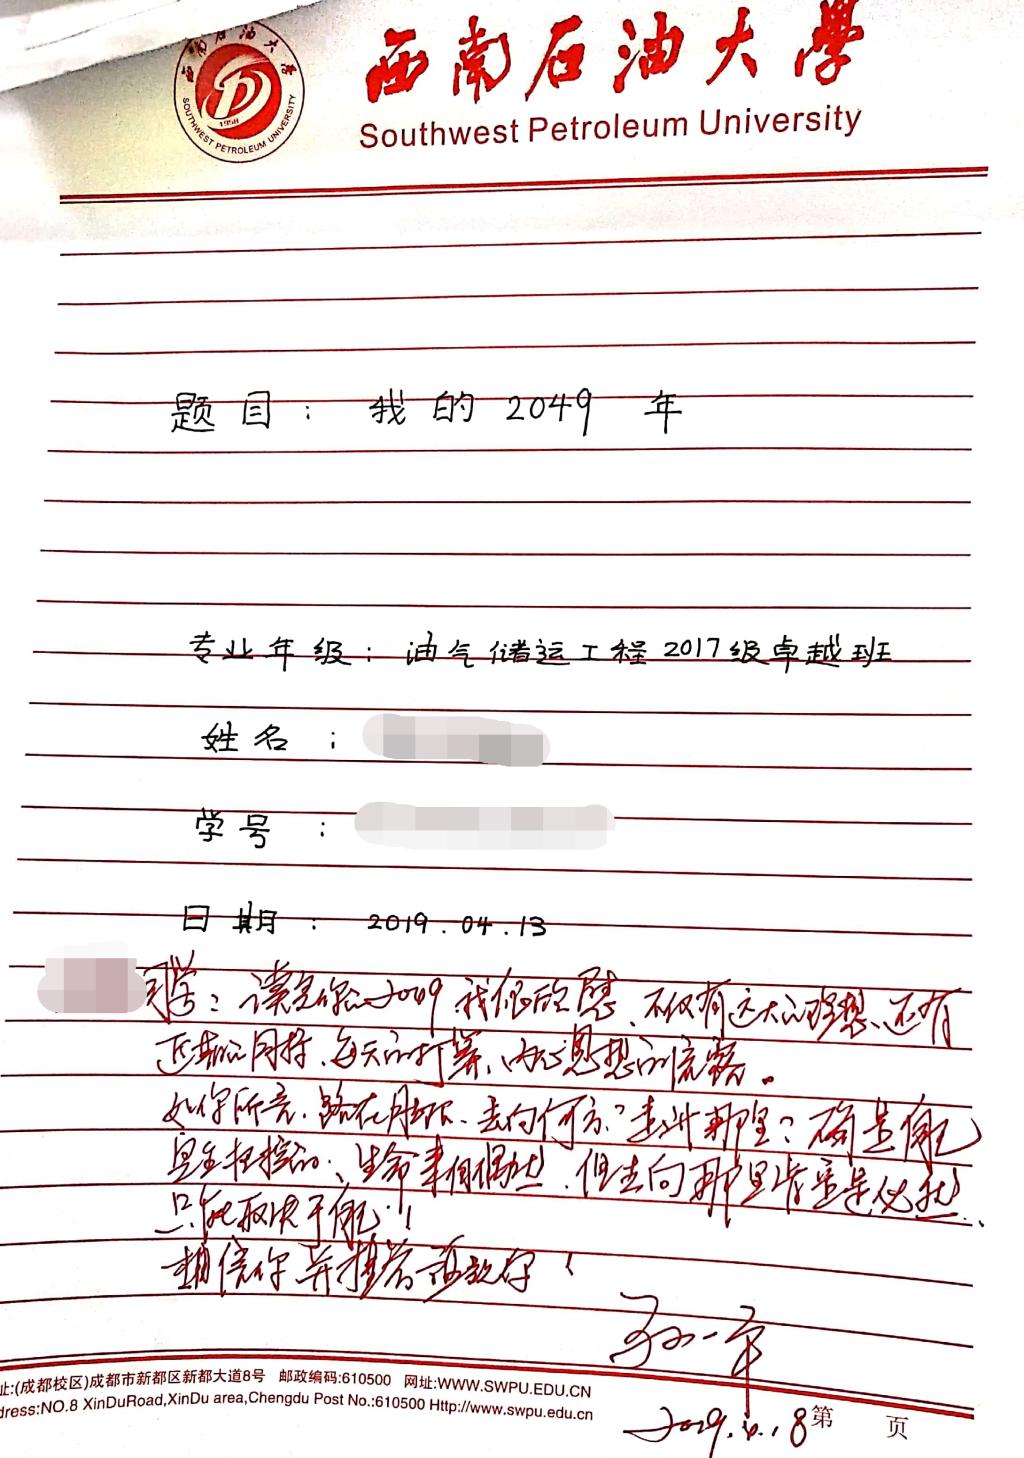 西南石油大学
SOUTHWEST PETROLEUM UNIVERSITY
1958
西南石油大學
Southwest Petroleum University
题目: 我的2049年
专业年级: 油气储运工程2017级卓越班
姓名:
学号:
日期: 2019.04.13
同学: 读完你的2049 我很欣慰、不仅有远大的理想、还有
近期的目标、每天的打算、内心思想的流露。
如你所言、路在脚下、去向何方? 走进那里? 确是自己
完全把控的、生命来自偶然、但去向那里肯定是必然..
只能取决于自己!
相信你 并推荐
2019.6.18
址:(成都校区)成都市新都区新都大道8号 邮政编码:610500 网址:WWW.SWPU.EDU.CN
dress:NO.8 XinDuRoad,XinDu area,Chengdu Post No.:610500 Http://www.swpu.edu.cn
第 页